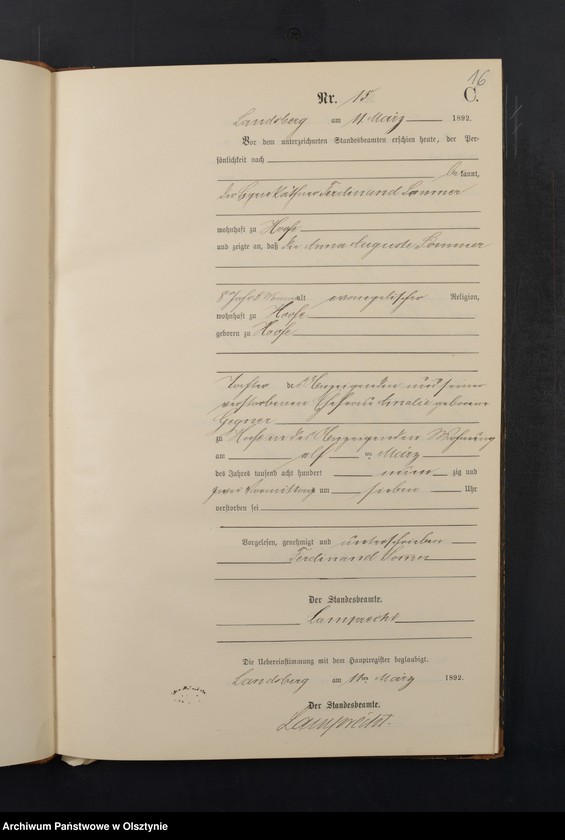 16
Nr. 15. C.
Landsberg am 11 März 1892.
Vor dem unterzeichneten Standesbeamten erschien heute, der Per-
sönlichkeit nach
be kannt,
der Ferdinand Sommer
wohnhaft zu Hoofe
und zeigte an, daß die Anna Auguste Sommer
8 Jahr 8 alt evangelischer Religion,
wohnhaft zu Hoofe
geboren zu Hoofe
Tochter des Anzeigenden und seiner
verstorbenen Ehefrau Amalie geborene
zu Hoofe in des Anzeigenden Wohnung
am elf ten März
des Jahres tausend acht hundert neun zig und
zwei Vormittags um sieben Uhr
verstorben sei
Vorgelesen, genehmigt und unterschrieben
Ferdinand Sommer
Der Standesbeamte.
Lamprecht
Die Uebereinstimmung mit dem Hauptregister beglaubigt.
Landsberg am 11ten März 1892.
Der Standesbeamte.
Lamprecht.
Archiwum Państwowe w Olsztynie